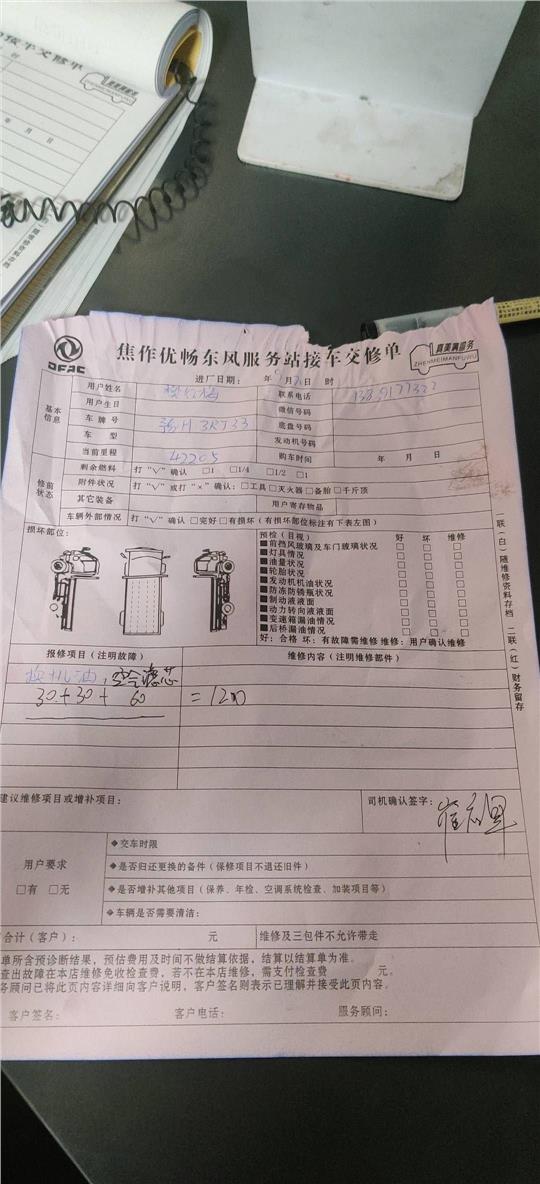 接车交修单
年 月 日
DFAC
焦作优畅东风服务站接车交修单
真美满服务
ZHENMEIMANFUWU
进厂日期： 年 月 日 时
基本信息
用户姓名
联系电话
用户生日
微信号码
车牌号
3RJ33
底盘号码
车 型
发动机号码
当前里程 42205
购车时间 年 月 日
修前状态
剩余燃料 打“√”确认 □1 □1/4 □1/2 □1
附件状况 打“√”或打“×”确认：□工具□灭火器□备胎□千斤顶
其它装备
用户寄存物品
车辆外部情况 打“√”确认 □完好□有损坏（有损坏部位标注有下表左图）
损坏部位：
预检（目视） 好 坏 维修
■前挡风玻璃及车门玻璃状况 □ □ □
■灯具情况 □ □ □
■油量状况 □ □ □
■轮胎状况 □ □ □
■发动机机油状况 □ □ □
■防冻防锈瓶状况 □ □ □
■制动液液面 □ □ □
■动力转向液液面 □ □ □
■变速箱漏油情况 □ □ □
■后桥漏油情况 □ □ □
好：合格 坏：有故障需维修 维修：用户确认维修
报修项目（注明故障）
维修内容（注明维修部件）
换机油，空气滤芯
30+30+ 60 =120
建议维修项目或增补项目：
司机确认签字：
用户要求
□有 □无
◆交车时限
◆是否归还更换的备件（保修项目不退还旧件）
◆是否增补其他项目（保养、年检、空调系统检查、加装项目等）
◆车辆是否需要清洁：
合计（客户）： 元
维修及三包件不允许带走
单所含预诊断结果，预估费用及时间不做结算依据，结算以结算单为准。
查出故障在本店维修免收检查费，若不在本店维修，需支付检查费 元。
务顾问已将此页内容详细向客户说明，客户签名则表示已理解并接受此页内容。
客户签名： 客户电话： 服务顾问：
一联（白）随维修资料存档 二联（红）财务留存